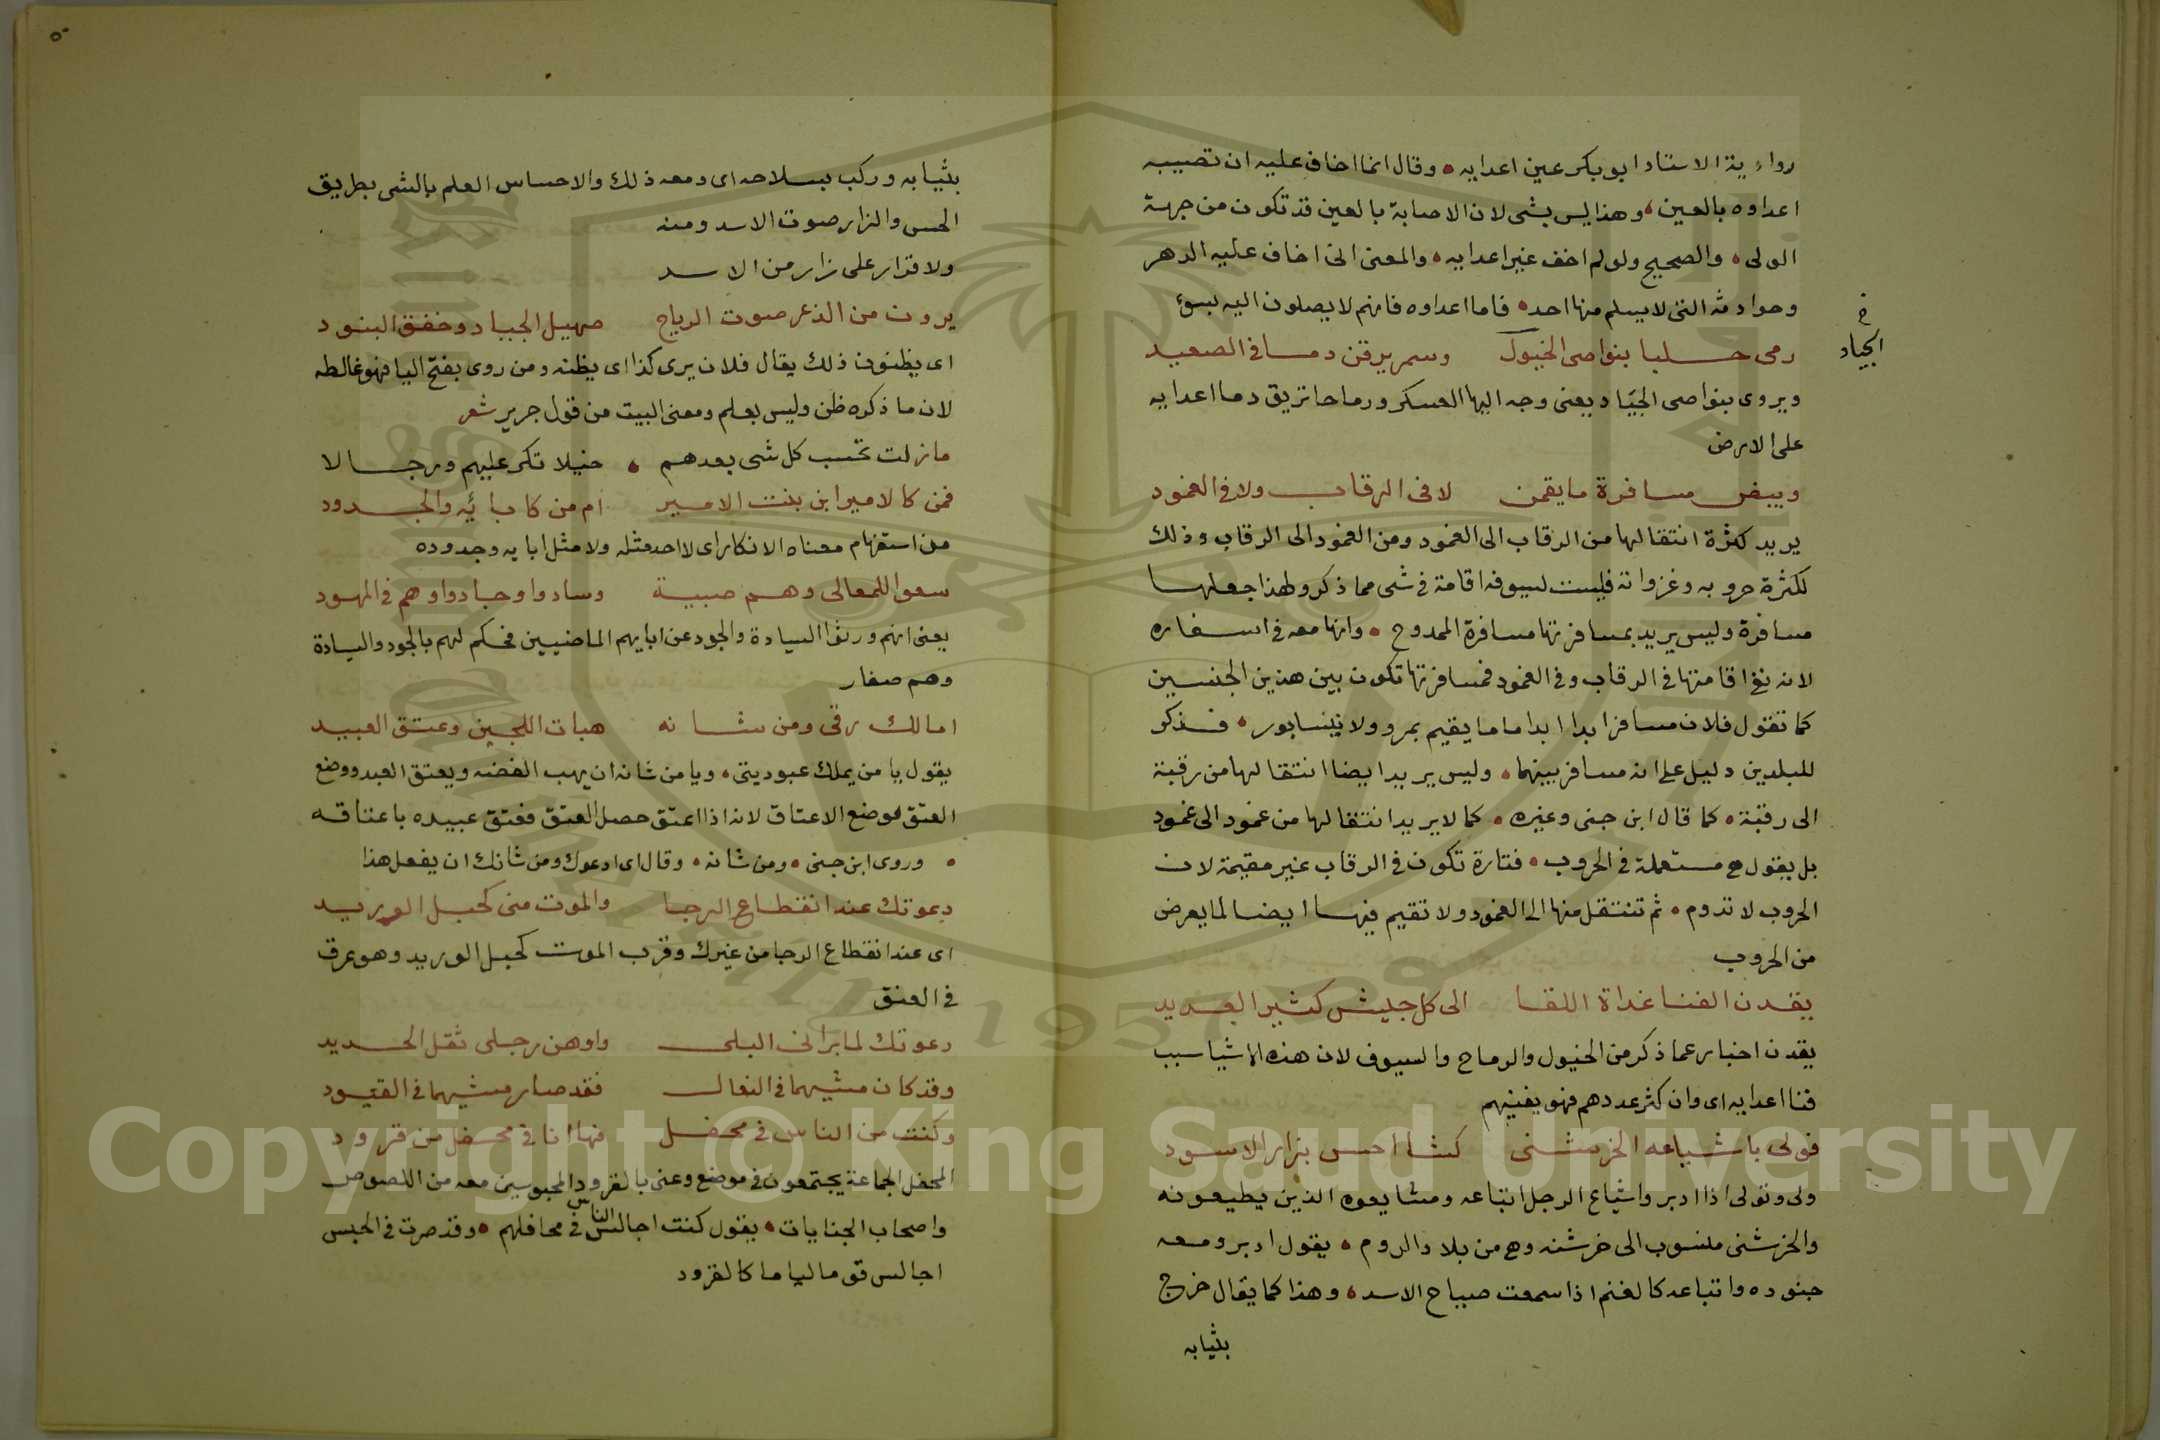 رواية الاستاد ابو بكر عين اعدايه • وقال انما اخاف عليه ان تصيبه
اعداوه بالعين • وهذا ليس بشى لان الاصابة بالعين قد تكون من جهة
الولى • والصحيح ولو لم اخف غير اعدايه • والمعنى انى اخاف عليه الدهر
وحوادثه التى لا يسلم منها احد • فاما اعداوه فانهم لا يصلون اليه بسوء
خ
الجياد
رمى حلبا بنواصى الخيول وسمر يرقن دما فى الصعيد
ويروى بنواصى الجياد يعنى وجه اليها العسكر ورماحا تريق دما اعدايه
على الارض
وبيض مسافرة ما يقمن لا فى الرقاب ولا فى الغمود
يريد كثرة انتقالها من الرقاب الى الغمود ومن الغمود الى الرقاب وذلك
لكثرة حروبه وغزواته فليست لسيوفه اقامة فى شى مما ذكر ولهذا جعلها
مسافرة وليس يريد بمسافرتها مسافرة الممدوح • وانها معه فى اسفاره
لانه نفى اقامتها فى الرقاب وفى الغمود فمسافرتها تكون بين هذين الجنسين
كما تقول فلان مسافر ابدا ابدا ما يقيم بمرو ولا نيسابور • فذكر
للبلدين دليل على انه مسافر بينهما • وليس يريد ايضا انتقالها من رقبة
الى رقبة • كما قال ابن جنى وغيره • كما لا يريد انتقالها من غمود الى غمود
بل يقول هى مستعملة فى الحروب • فتارة تكون فى الرقاب غير مقيمة لان
الحروب لا تدوم • ثم تنتقل منها الى الغمود ولا تقيم فيها ايضا لما يعرض
من الحروب
يقدن الفنا غداة اللقا الى كل جيش كثير العديد
يقدن اخبار عما ذكر من الخيول والرماح والسيوف لان هذه الاشيا سبب
فنا اعدايه اى وان كثر عددهم فهو يفنيهم
فولى باشياعه الخرشنى كشا احس بزار الاسود
ولى وتولى اذا ادبر واشياع الرجل اتباعه ومشايعوه الذين يطيعونه
والخرشنى منسوب الى خرشنه وهى من بلاد الروم • يقول ادبر ومعه
جنوده واتباعه كالغنم اذا سمعت صياح الاسد • وهذا كما يقال خرج
بثيابه
بثيابه وركب بسلاحه اى ومعه ذلك والاحساس العلم بالشى بطريق
الحس والزار صوت الاسد ومنه
ولا قرار على زار من الاسد
يرون من الذعر صوت الرياح صهيل الجياد وخفق البنود
اى يظنون ذلك يقال فلان يرى كذا اى يظنه ومن روى بفتح اليا فهو غالط
لان ما ذكره ظن وليس بعلم ومعنى البيت من قول جرير شعر
مازلت تحسب كل شى بعدهم • خيلا تكر عليهم ورجالا
فمن كالامير ابن بنت الامير ام من كابائه والجدود
من استفهام معناه الانكار اى لا احد مثله ولا مثل ابايه وجدوده
سعوا للمعالى وهم صبية وسادوا وجادوا وهم فى المهود
يعنى انهم ورثوا السيادة والجود عن ابايهم الماضيين فحكم لهم بالجود والسيادة
وهم صغار
امالك رقى ومن شانه هبات اللجين وعتق العبيد
يقول يا من يملك عبوديتى • ويا من شانه ان يهب الفضه ويعتق العبد ووضع
العتق موضع الاعتاق لانه اذا اعتق حصل العتق فعتق عبيده باعتاقه
• وروى ابن جنى • ومن شانه • وقال اى ادعوك ومن شانك ان يفعل هذا
دعوتك عند انقطاع الرجا والموت منى كحبل الوريد
اى عند انقطاع الرجا من غيرك وقرب الموت كحبل الوريد وهو عرق
فى العنق
دعوتك لما برانى البلى واوهن رجلى ثقل الحديد
وقد كان مشيهما فى النعال فقد صار مشيهما فى القيود
وكنت من الناس فى محفل فها انا فى محفل من قرود
المحفل الجماعة يجتمعون فى موضع وعنى بالقرود المحبوسين معه من اللصوص
واصحاب الجنايات • يقول كنت اجالس الناس فى محافلهم • وقد صرت فى الحبس
اجالس قوما لياما كالقرود
Copyright © King Saud University
1957